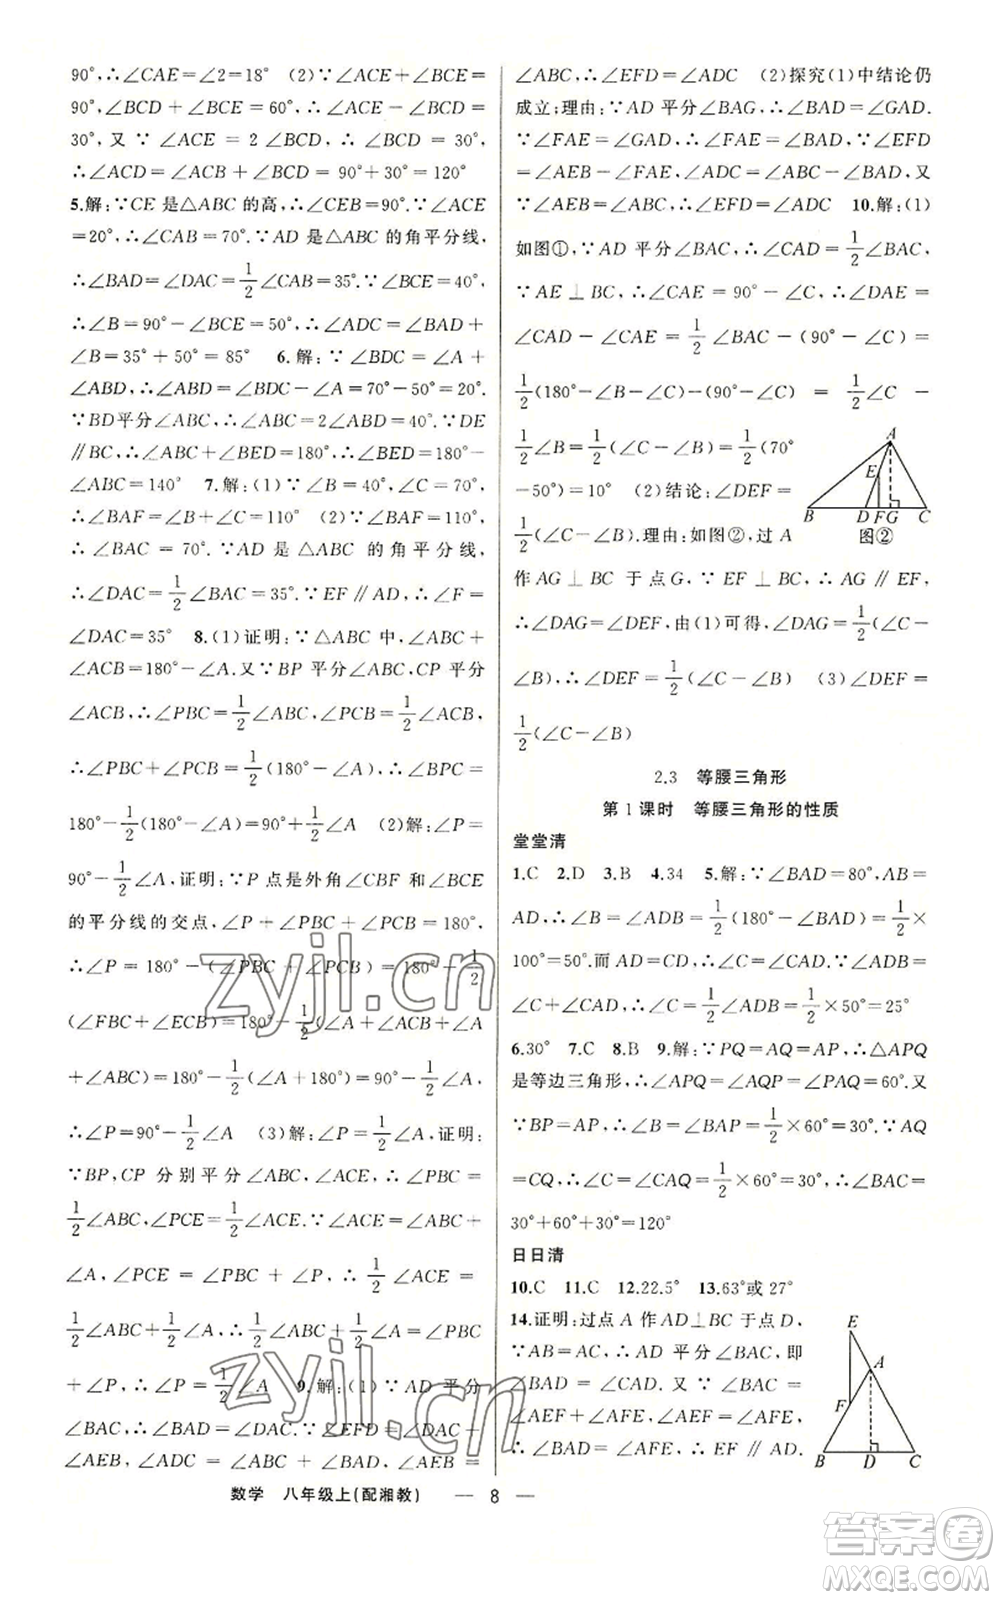 90°,∴∠CAE=∠2=18° (2)∵∠ACE+∠BCE=
90°,∠BCD+∠BCE=90°,∴∠ACE-∠BCD=
30°,又∵∠ACE=2∠BCD,∴∠BCD=30°,
∴∠ACD=∠ACB+∠BCD=90°+30°=120°
5.解:∵CE是△ABC的高,∴∠CEB=90°.∵∠ACE
=20°,∴∠CAB=70°.∵AD是△ABC的角平分线,
∴∠BAD=∠DAC=1/2∠CAB=35°.∵∠BCE=40°,
∴∠B=90°-∠BCE=50°,∴∠ADC=∠BAD+
∠B=35°+50°=85° 6.解:∵∠BDC=∠A+
∠ABD,∴∠ABD=∠BDC-∠A=70°-50°=20°.
∵BD平分∠ABC,∴∠ABC=2∠ABD=40°.∵DE
∥BC,∴∠ABC+∠BED=180°,∴∠BED=180°-
∠ABC=140° 7.解:(1)∵∠B=40°,∠C=70°,
∴∠BAF=∠B+∠C=110° (2)∵∠BAF=110°,
∴∠BAC=70°.∵AD是△ABC的角平分线,
∴∠DAC=1/2∠BAC=35°.∵EF∥AD,∴∠F=
∠DAC=35° 8.(1)证明:∵△ABC中,∠ABC+
∠ACB=180°-∠A.又∵BP平分∠ABC,CP平分
∠ACB,∴∠PBC=1/2∠ABC,∠PCB=1/2∠ACB,
∴∠PBC+∠PCB=1/2(180°-∠A),∴∠BPC=
180°-1/2(180°-∠A)=90°+1/2∠A (2)解:∠P=
90°-1/2∠A,证明:∵P点是外角∠CBF和∠BCE
的平分线的交点,∠P+∠PBC+∠PCB=180°,
∴∠P=180°-(∠PBC+∠PCB)=180°-1/2
(∠FBC+∠ECB)=180°-1/2(∠A+∠ACB+∠A
+∠ABC)=180°-1/2(∠A+180°)=90°-1/2∠A,
∴∠P=90°-1/2∠A (3)解:∠P=1/2∠A,证明:
∵BP,CP分别平分∠ABC,∠ACE,∴∠PBC=
1/2∠ABC,∠PCE=1/2∠ACE.∵∠ACE=∠ABC+
∠A,∠PCE=∠PBC+∠P,∴1/2∠ACE=
1/2∠ABC+1/2∠A,∴1/2∠ABC+1/2∠A=∠PBC
+∠P,∴∠P=1/2∠A 9.解:(1)∵AD平分
∠BAC,∴∠BAD=∠DAC,∵∠EFD=∠DAC+
∠AEB,∠ADC=∠ABC+∠BAD,∠AEB=
∠ABC,∴∠EFD=∠ADC (2)探究(1)中结论仍
成立;理由:∵AD平分∠BAG,∴∠BAD=∠GAD.
∵∠FAE=∠GAD,∴∠FAE=∠BAD.∵∠EFD
=∠AEB-∠FAE,∠ADC=∠ABC-∠BAD,又
∵∠AEB=∠ABC,∴∠EFD=∠ADC 10.解:(1)
如图①,∵AD平分∠BAC,∴∠CAD=1/2∠BAC.
∵AE⊥BC,∴∠CAE=90°-∠C,∴∠DAE=
∠CAD-∠CAE=1/2∠BAC-(90°-∠C)=
1/2(180°-∠B-∠C)-(90°-∠C)=1/2∠C-
1/2∠B=1/2(∠C-∠B)=1/2(70°
-50°)=10° (2)结论:∠DEF=
1/2(∠C-∠B).理由:如图②,过A
作AG⊥BC于点G,∵EF⊥BC,∴AG∥EF,
A
E
B D F G C
图②
∴∠DAG=∠DEF,由(1)可得,∠DAG=1/2(∠C-
∠B),∴∠DEF=1/2(∠C-∠B) (3)∠DEF=
1/2(∠C-∠B)
2.3 等腰三角形
第1课时 等腰三角形的性质
堂堂清
1.C 2.D 3.B 4.34 5.解:∵∠BAD=80°,AB=
AD,∴∠B=∠ADB=1/2(180°-∠BAD)=1/2×
100°=50°.而AD=CD,∴∠C=∠CAD.∵∠ADB=
∠C+∠CAD,∴∠C=1/2∠ADB=1/2×50°=25°
6.30° 7.C 8.B 9.解:∵PQ=AQ=AP,∴△APQ
是等边三角形,∴∠APQ=∠AQP=∠PAQ=60°.又
∵BP=AP,∴∠B=∠BAP=1/2×60°=30°.∵AQ
=CQ,∴∠C=∠CAQ=1/2×60°=30°,∴∠BAC=
30°+60°+30°=120°
日日清
10.C 11.C 12.22.5° 13.63°或27°
14.证明:过点A作AD⊥BC于点D,
∵AB=AC,∴AD平分∠BAC,即
∠BAD=∠CAD.又∵∠BAC=
∠AEF+∠AFE,∠AEF=∠AFE,
∴∠BAD=∠AFE,∴EF∥AD.
E
A
F
B D C
数学 八年级上(配湘教) — 8 —
zyjl.cn
zyjl.cn
答案卷
MXQE.COM